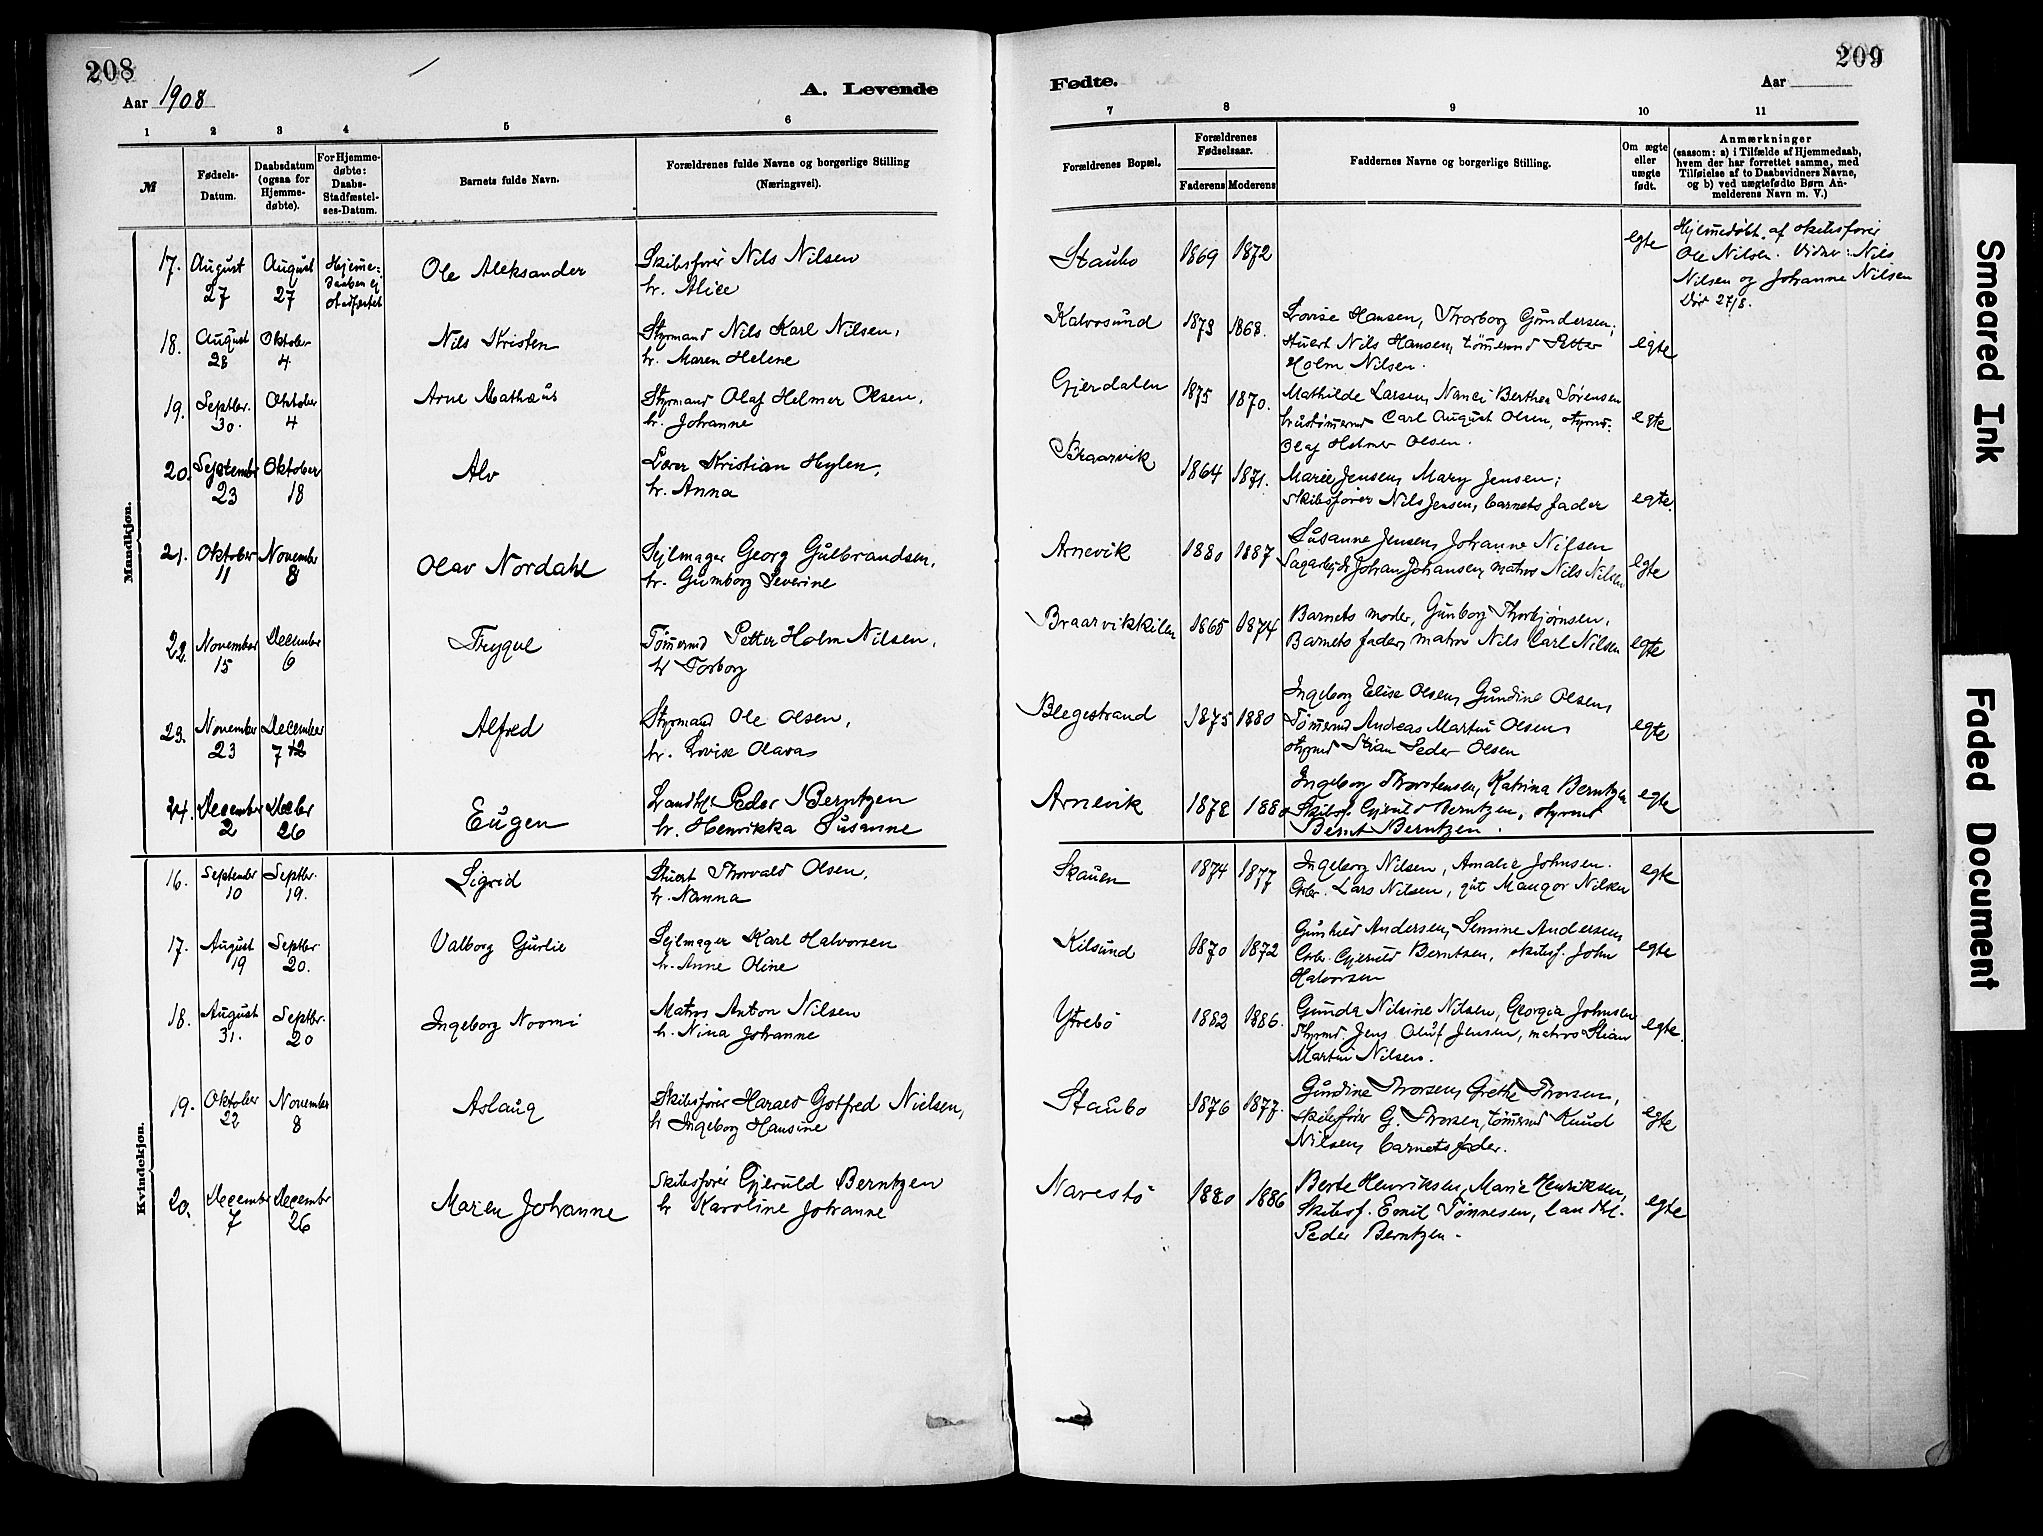 208
Aar 1908
A. Levende
1 2 3 4 5 6
№
Fødsels-
Datum.
Daabsdatum
(ogsaa for
Hjemme-
døbte).
For Hjemme-
døbte:
Daabs-
Stadfæstel-
ses-Datum.
Barnets fulde Navn.
Forældrenes fulde Navne og borgerlige Stilling
(Næringsvei).
Mandkjøn.
17. August 27 August 27 Hjemme:
daaben ej
stadfæstet
Ole Aleksander
Skibsfører Nils Nilsen
h. Alice
18. August 28 Oktober 4
Nils Kristen
Styrmand Nils Karl Nilsen,
h. Maren Helene
19. Septbr. 30. Oktober 4
Arne Mathæus
Styrmand Olaf Helmer Olsen,
h. Johanne
20. September 23 Oktober 18
Alv
Lærer Kristian Hylen,
h. Anna
21. Oktober 11 November 8
Olav Nordahl
Sejlmager Georg Gulbrandsen,
h. Gumborg Severine
22. November 15 December 6
Trygve
Tømmermd Petter Holm Nilsen,
h Torborg
23. November 23 December 7
Alfred
Styrmand Ole Olsen,
h. Lovise Olava
24. December 2 Decbr 26
Eugen
Landh. Peder Berntzen
h. Henrikka Susanne
Kvindekjøn.
16. September 10 Septbr. 19.
Sigrid
Stuert Thorvald Olsen,
h. Nanna
17. August 19 Septbr 20.
Valborg Gurlie
Sejlmager Karl Halvorsen
h. Anne Oline
18. August 31. Septbr. 20
Ingeborg Noomi
Matros Anton Nilsen
h. Nina Johanne
19. Oktober 22 November 8
Aslaug
Skibsfører Harald Gotfred Nielsen,
h Ingeborg Hansine
20. December 7 December 26
Maren Johanne
Skibsfører Gjeruld Berntzen
h Karoline Johanne
209
Fødte.
Aar
7 8 9 10 11
Forældrenes Bopæl.
Forældrenes
Fødselsaar.
Faderens Moderens
Faddernes Navne og borgerlige Stilling.
Om ægte
eller
uægte
født.
Anmærkninger
(saasom: a) i Tilfælde af Hjemmedaab,
hvem der har forrettet samme, med
Tilføielse af to Daabsvidners Navne,
og b) ved uægtefødte Børn An-
melderens Navn m. V.)
Staubo 1869 1872 egte
Hjemmedøbt af skibsfører
Ole Nilsen. Vidner: Nils
Nilsen og Johanne Nilsen
Død 27/8.
Kalvøsund 1873 1868. egte
Lovise Hansen, Thorborg Gundersen;
stuert Nils Hansen, tømmermd Petter
Holm Nilsen.
Gjerdalen 1875 1870. egte
Mathilde Larsen, Nanci Berthea Sørensen
hustømmermd Carl August Olsen, styrmd.
Olaf Helmer Olsen.
Braarvik 1864 1871. egte.
Marie Jensen, Mary Jensen;
skibsfører Nils Jensen, barnets fader
Arnevik 1880 1887 egte
Susanne Jensen, Johanne Nilsen
Sagarbejdr Johan Johansen, matros Nils Nilsen
Braarvikkilen 1865 1874 egte
Barnets moder, Gunborg Thorbjørnsen,
Barnets fader, matros Nils Carl Nilsen
Blegestrand 1875 1880 egte
Ingeborg Elise Olsen, Gundine Olsen,
Tømmermd Andreas Martin Olsen,
styrmd Stian Peder Olsen
Arnevik 1878 1880 egte
Ingeborg Thorstensen, Katrina Berntzen
Skibsf. Gjeruld Berntzen, styrmd
Bernt Berntzen.
Skauen 1874 1877 egte
Ingeborg Nilsen, Amalie Johnsen.
Lars Nilsen, gut Mangor Nilsen
Kilsund 1870 1872 egte
Gunhild Andersen, Semine Andersen,
Gjeruld Berntsen, skibsf. John
Halvorsen
Ytrebø 1882 1886. egte.
Gunda Nilsine Nilsen, Georgia Johnsen
Styrmd. Jens Oluf Jensen, matros Stian
Martin Nilsen.
Staubo 1876 1877. egte
Gundine Thorsen, Grethe Thorsen,
skibsfører G. Thorsen, tømmermd Knud
Nilsen, barnets fader.
Narestø 1880 1886 egte
Berte Henriksen, Marie Henriksen,
Skibsf. Emil Tønnesen, landhl.
Peder Berntzen.
Smeared Ink
Faded Document